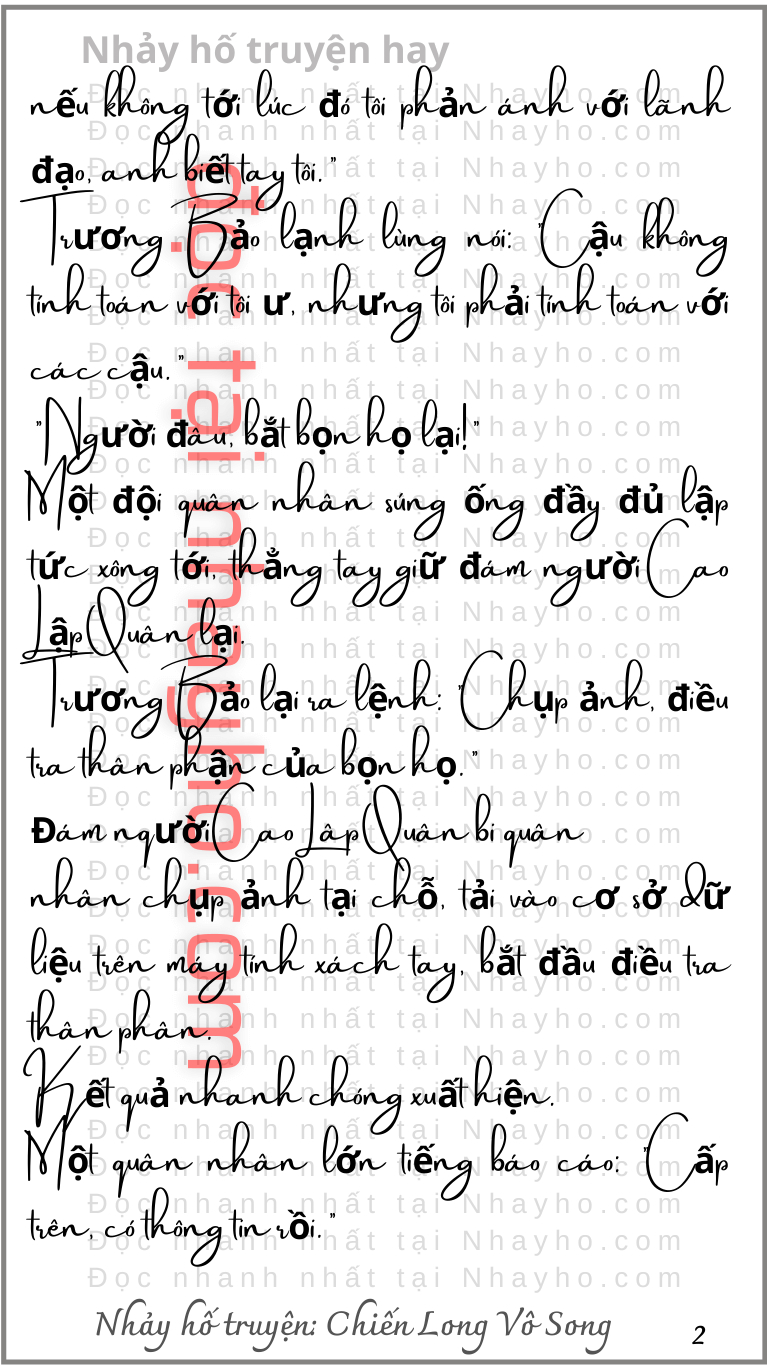 Nhảy hố truyện hay
nếu không tới lúc đó tôi phản ánh với lãnh
đạo, anh biết tay tôi."
Trương Bảo lạnh lùng nói: "Cậu không
tính toán với tôi ư, nhưng tôi phải tính toán với
các cậu."
"Người đâu, bắt bọn họ lại!"
Một đội quân nhân súng ống đầy đủ lập
tức xông tới, thẳng tay giữ đám người Cao
Lập Quân lại.
Trương Bảo lại ra lệnh: "Chụp ảnh, điều
tra thân phận của bọn họ."
Đám người Cao Lâp Quân bi quân
nhân chụp ảnh tại chỗ, tải vào cơ sở dữ
liệu trên máy tính xách tay, bắt đầu điều tra
thân phân.
Kết quả nhanh chóng xuất hiện.
Một quân nhân lớn tiếng báo cáo: "Cấp
trên, có thông tin rồi."
đọc tại nhayho.com
Đọc nhanh nhất tại Nhayho.com
Nhảy hố truyện: Chiến Long Vô Song
2